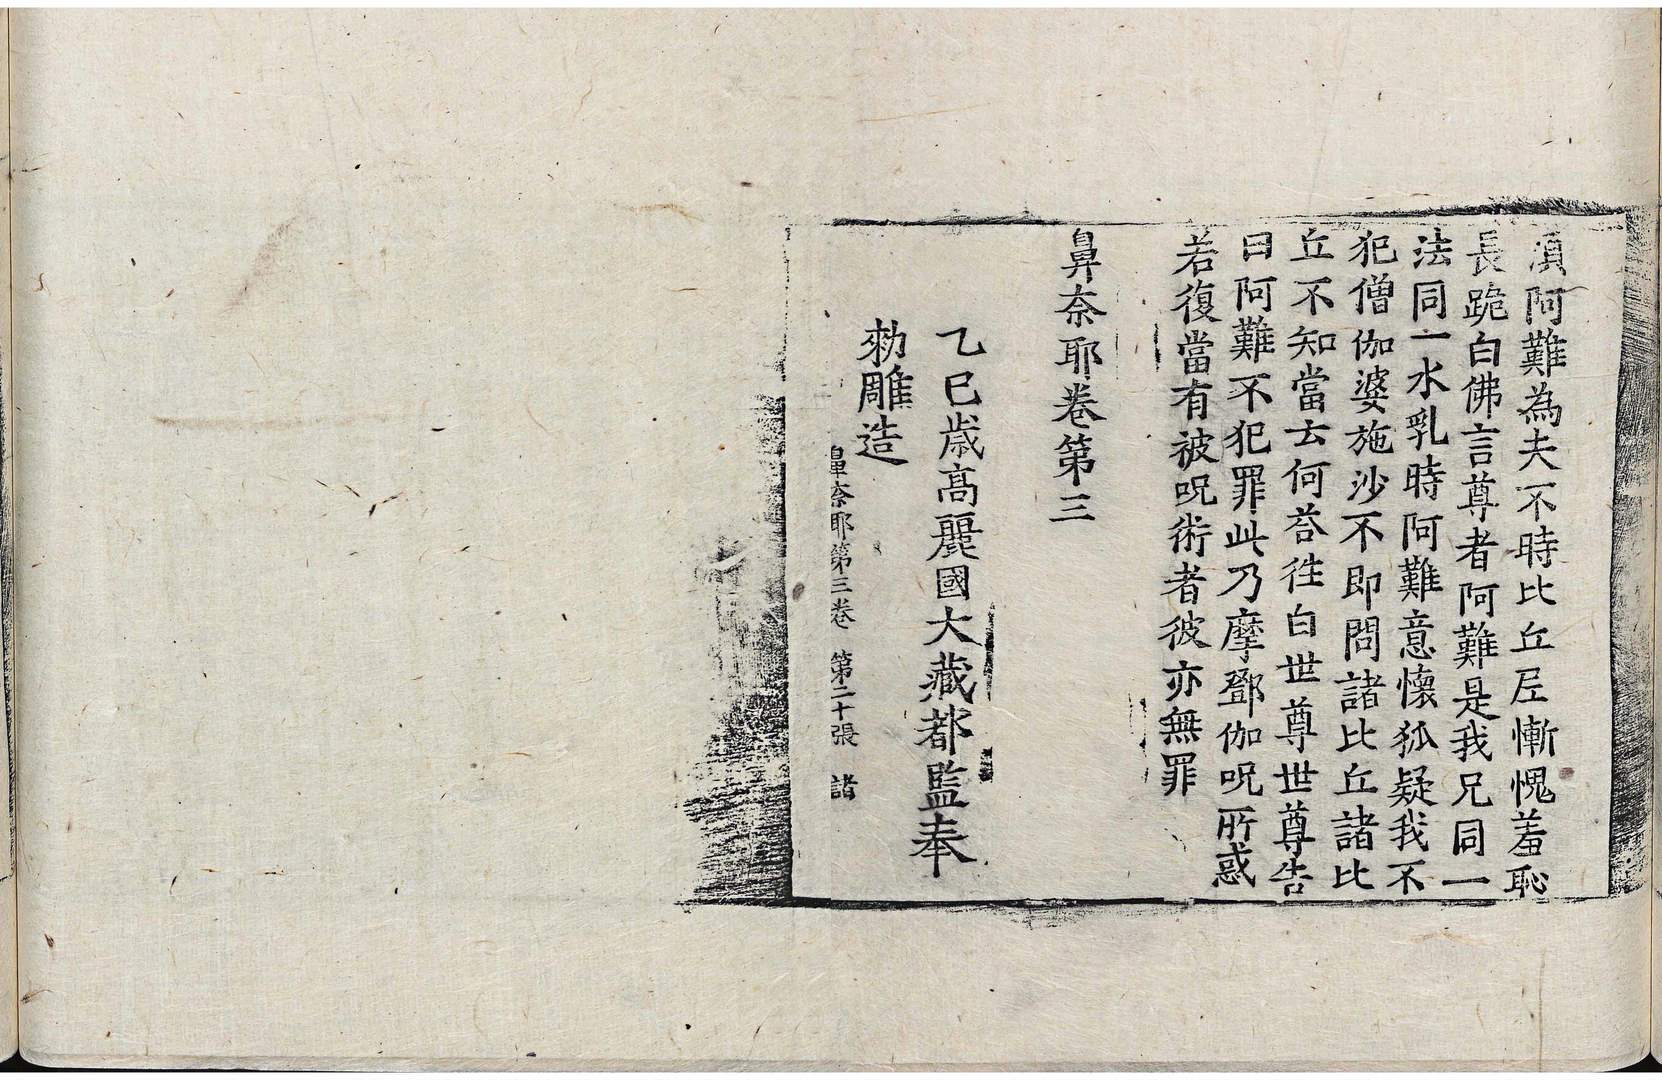 須阿難為夫不時比丘尼慚愧羞恥
長跪白佛言尊者阿難是我兄同一
法同一水乳時阿難意懷狐疑我不
犯僧伽婆施沙不即問諸比丘諸比
丘不知當去何荅徃白世尊世尊告
曰阿難不犯罪此乃摩鄧伽呪所惑
若復當有被呪術者彼亦無罪
鼻奈耶卷第三
乙巳歳高麗國大藏都監奉
勑雕造
鼻奈耶第三卷 第二十張 諸